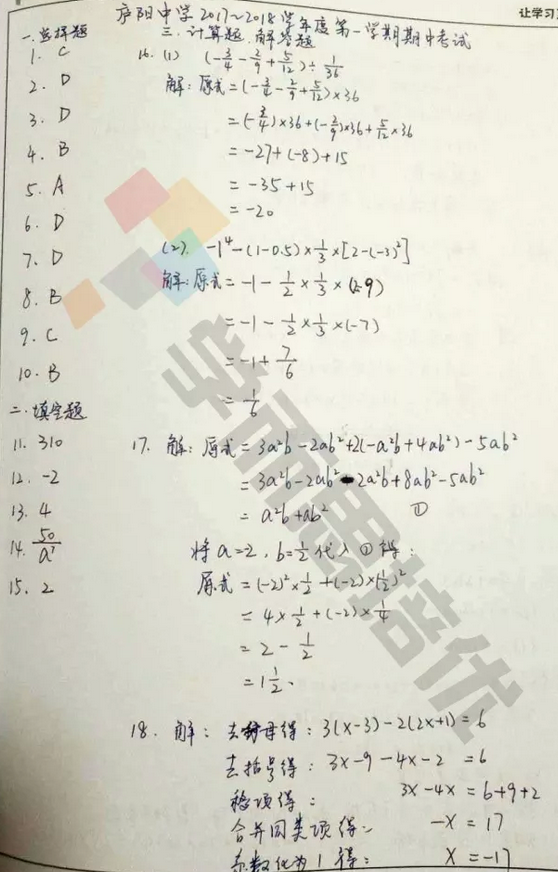 庐阳中学2017~2018学年度第一学期期中考试
让学习
一.选择题
1. C
2. D
3. D
4. B
5. A
6. D
7. D
8. B
9. C
10. B
二.填空题
11. 310
12. -2
13. 4
14. 50/a
15. 2
三.计算题.解答题
16. (1) (-3/4-2/9+5/12)÷1/36
解:原式=(-3/4-2/9+5/12)×36
=(-3/4)×36+(-2/9)×36+5/12×36
=-27+(-8)+15
=-35+15
=-20
(2). -1⁴-(1-0.5)×1/3×[2-(-3)²]
解:原式=-1-1/2×1/3×(2-9)
=-1-1/2×1/3×(-7)
=-1+7/6
=1/6
17. 解:原式=3a²b-2ab²+2(-a²b+4ab²)-5ab²
=3a²b-2ab²-2a²b+8ab²-5ab²
=a²b+ab² ①
将a=2,b=1/2代入①得:
原式=(-2)²×1/2+(-2)×(1/2)²
=4×1/2+(-2)×1/4
=2-1/2
=1 1/2.
18. 解:去分母得:3(x-3)-2(2x+1)=6
去括号得:3x-9-4x-2=6
移项得:3x-4x=6+9+2
合并同类项得:-x=17
系数化为1得:x=-17
学而思培优